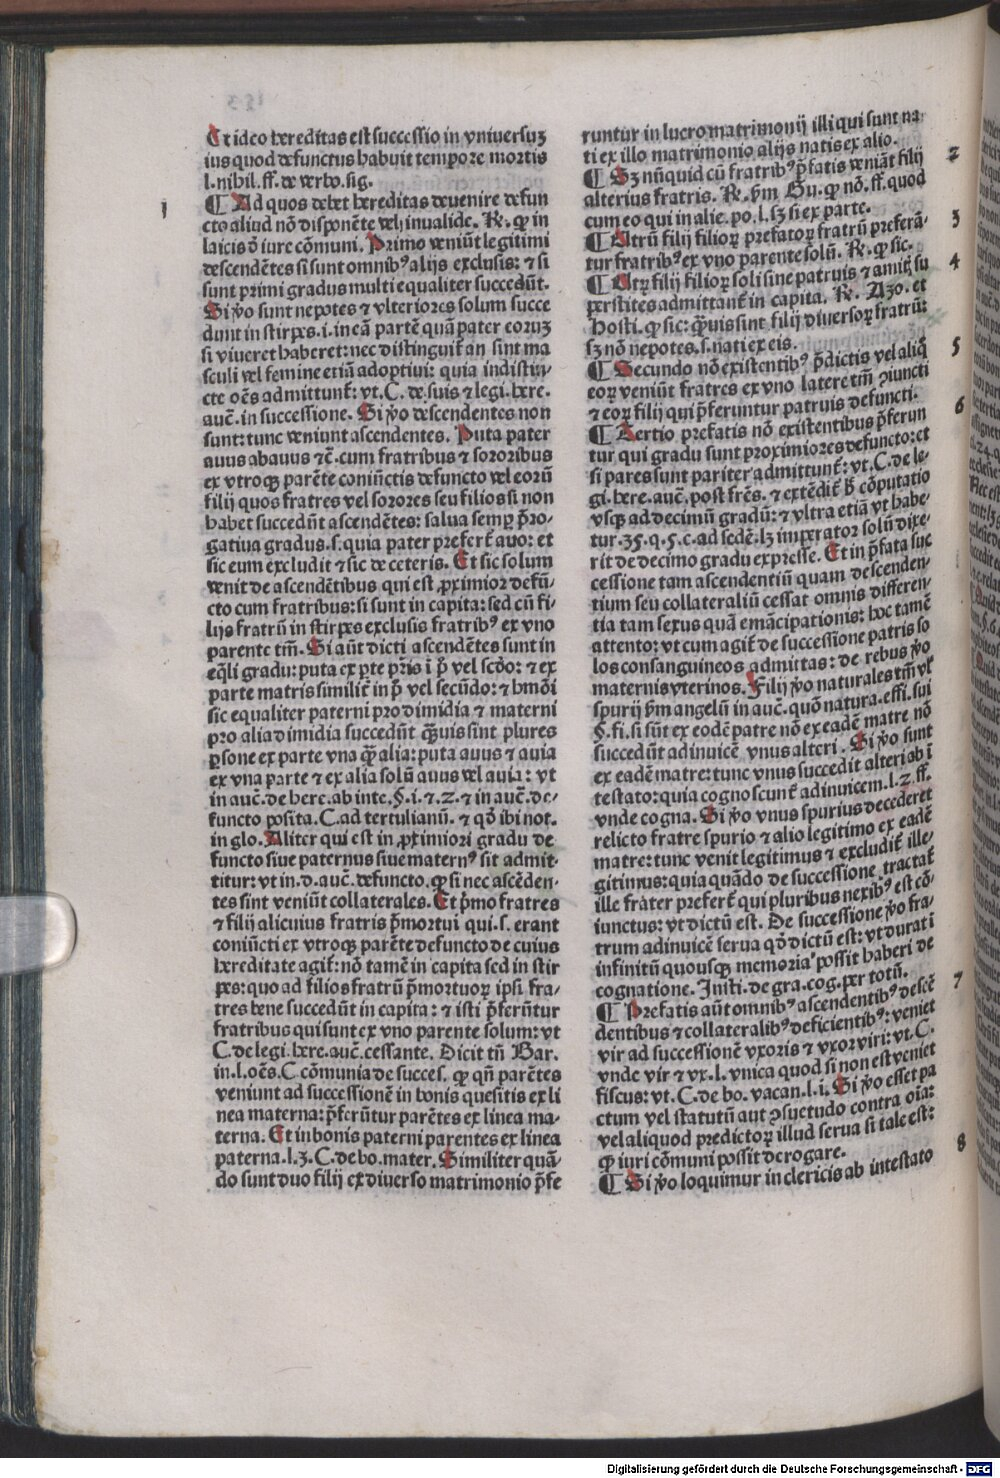 Et ideo hereditas est successio in vniuersuȝ
ius quod defunctus habuit tempore mortis
l. nihil. ff. de verbo. sig.
1
¶ Ad quos debet hereditas deuenire defun
cto aliud nō disponēte vel inualide. R̄. ꝙ in
laicis ō iure cōmuni. Primo veniūt legitimi
descendētes si sunt omnibꝰ alijs exclusis: ⁊ si
sunt primi gradus multi equaliter succedūt.
Si ꝟo sunt nepotes ⁊ vlteriores solum succe
dunt in stirpes. i. in eā partē quā pater eoruȝ
si viueret haberet: nec distinguit̄ an sint ma
sculi vel femine etiā adoptiui: quia indistin-
cte oēs admittunt̄: vt. C. de suis ⁊ legi. here.
auc̄. in successione. Si ꝟo descendentes non
sunt: tunc veniunt ascendentes. Puta pater
auus abauus ⁊c̄. cum fratribus ⁊ sororibus
ex vtroqꝫ parēte coniūctis defuncto vel eorū
filij quos fratres vel sorores seu filios si non
habet succedūt ascendētes: salua semꝑ p̄ro-
gatiua gradus. s. quia pater prefert̄ auo: et
sic eum excludit ⁊ sic de ceteris. Et sic solum
venit de ascendētibus qui est ꝓximior defū-
cto cum fratribus: si sunt in capita: sed cū fi-
lijs fratrū in stirpes exclusis fratribꝰ ex vno
parente tm̄. Si aūt dicti ascendētes sunt in
eq̄li gradu: puta ex ꝑte pr̄is ī p̄ vel scd̄o: ⁊ ex
parte matris similit̄ in p̄ vel secūdo: ⁊ hmōi
sic equaliter paterni pro dimidia ⁊ materni
pro alia dimidia succedūt q̄uis sint plures
ꝑsone ex parte vna q̄ȝ alia: puta auus ⁊ auia
ex vna parte ⁊ ex alia solū auus vel auia: vt
in auc̄. de here. ab inte. §. i. ⁊. 2. ⁊ in auc̄. de-
functo posita. C. ad tertulianū. ⁊ qō ibi not.
in glo. Aliter qui est in ꝓximiori gradu de
functo siue paternus siue maternꝰ sit admit-
titur: vt in. d. auc̄. defuncto. ꝙ si nec ascēden-
tes sint veniūt collaterales. Et p̄mo fratres
⁊ filij alicuius fratris p̄mortui qui. s. erant
coniūcti ex vtroqꝫ parēte defuncto de cuius
hereditate agit̄: nō tamē in capita sed in stir
pes: quo ad filios fratrū p̄mortuoꝝ ipsi fra-
tres bene succedūt in capita: ⁊ isti p̄ferūtur
fratribus qui sunt ex vno parente solum: vt
C. de legi. here. auc̄. cessante. Dicit tn̄ Bar.
in. l. oēs. C cōmunia de succes. ꝙ qn̄ parētes
veniunt ad successionē in bonis quesitis ex li
nea materna: p̄ferūtur parētes ex linea ma-
terna. Et in bonis paterni parentes ex linea
paterna. l. 3. C. de bo. mater. Similiter quā-
do sunt duo filij ex diuerso matrimonio p̄fe
runtur in lucro matrimonij illi qui sunt na
ti ex illo matrimonio alijs natis ex alio.
2
¶ Sȝ nūquid cū fratribꝰ p̄fatis veniāt filij
alterius fratris. R̄. ẜm Gu. ꝙ nō. ff. quod
cum eo qui in alie. po. l. sȝ si ex parte.
3
¶ Utrū filij filioꝝ prefatoꝝ fratrū preferā-
tur fratribꝰ ex vno parente solū. R̄. ꝙ sic.
4
¶ Utꝝ filij filioꝝ soli sine patruis ⁊ amitꝭ su
perstites admittant̄ in capita. R̄. Azo. et
Hosti. ꝙ sic: q̄uis sint filij diuersoꝝ fratrū:
sȝ nō nepotes. s. nati ex eis.
5
¶ Secundo nō existentibꝰ p̄dictis vel aliq̄
eoꝝ veniūt fratres ex vno latere tm̄ ꝯiuncti
⁊ eoꝝ filij qui p̄feruntur patruis defuncti.
6
¶ Tertio prefatis nō existentibus p̄ferun
tur qui gradu sunt proximiores defuncto: et
si pares sunt pariter admittunt̄: vt. C. de le-
gi. here. auc̄. post fr̄es. ⁊ extēdit̄ h̄ cōputatio
vsqꝫ ad decimū gradū: ⁊ vltra etiā vt habe
tur. 35. q. 5. c. ad sedē. lȝ imperator solū dixe-
rit de decimo gradu expresse. Et in p̄fata suc
cessione tam ascendentiū quam descenden-
tium seu collateraliū cessat omnis differen-
tia tam sexus quā emācipationis: hoc tamē
attento: vt cum agit̄ de successione patris so
los consanguineos admittas: de rebus ꝟo
maternis vterinos. Filij ꝟo naturales tm̄ vl̄
spurij ẜm angelū in auc̄. quō natura. effi. sui
§. fi. si sūt ex eodē patre nō ex eadē matre nō
succedūt adinuicē vnus alteri. Si ꝟo sunt
ex eadē matre: tunc vnus succedit alteri ab ī
testato: quia cognoscunt̄ adinuicem. l. 2. ff.
vnde cogna. Si ꝟo vnus spurius decederet
relicto fratre spurio ⁊ alio legitimo ex eadē
matre: tunc venit legitimus ⁊ excludit̄ ille-
gitimus: quia quādo de successione tractat̄
ille frater prefert̄ qui pluribus nexibꝰ est cō-
iunctus: vt dictū est. De successione ꝟo fra-
trum adinuicē serua qō dictū est: vt durat ī
infinitū quousqꝫ memoria possit haberi de
cognatione. Insti. de gra. cog. per totū.
7
¶ Prefatis aūt omnibꝰ ascendentibꝰ descē
dentibus ⁊ collateralibꝰ deficientibꝰ: veniet
vir ad successionē vxoris ⁊ vxor viri: vt. C.
vnde vir ⁊ vx. l. vnica quod si non est veniet
fiscus: vt. C. de bo. vacan. l. i. Si ꝟo esset pa
ctum vel statutū aut ꝯsuetudo contra oīa:
vel aliquod predictoꝝ illud serua si tale est:
ꝙ iuri cōmuni possit derogare.
8
¶ Si ꝟo loquimur in clericis ab intestato
Digitalisierung gefördert durch die Deutsche Forschungsgemeinschaft - DFG